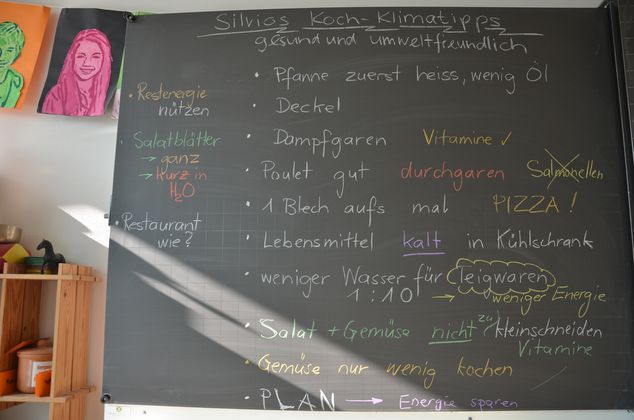 Silvios Koch-Klimatipps
gesund und umweltfreundlich
• Restenergie
nützen
• Salatblätter
→ ganz
→ kurz in
H2O
• Restaurant
wie?
• Pfanne zuerst heiss, wenig Öl
• Deckel
• Dampfgaren Vitamine ✓
• Poulet gut durchgaren Salmonellen
• 1 Blech aufs mal PIZZA!
• Lebensmittel kalt in Kühlschrank
• weniger Wasser für Teigwaren
1:10 → weniger Energie
• Salat + Gemüse nicht zu kleinschneiden
Vitamine
• Gemüse nur wenig kochen
• PLAN → Energie sparen